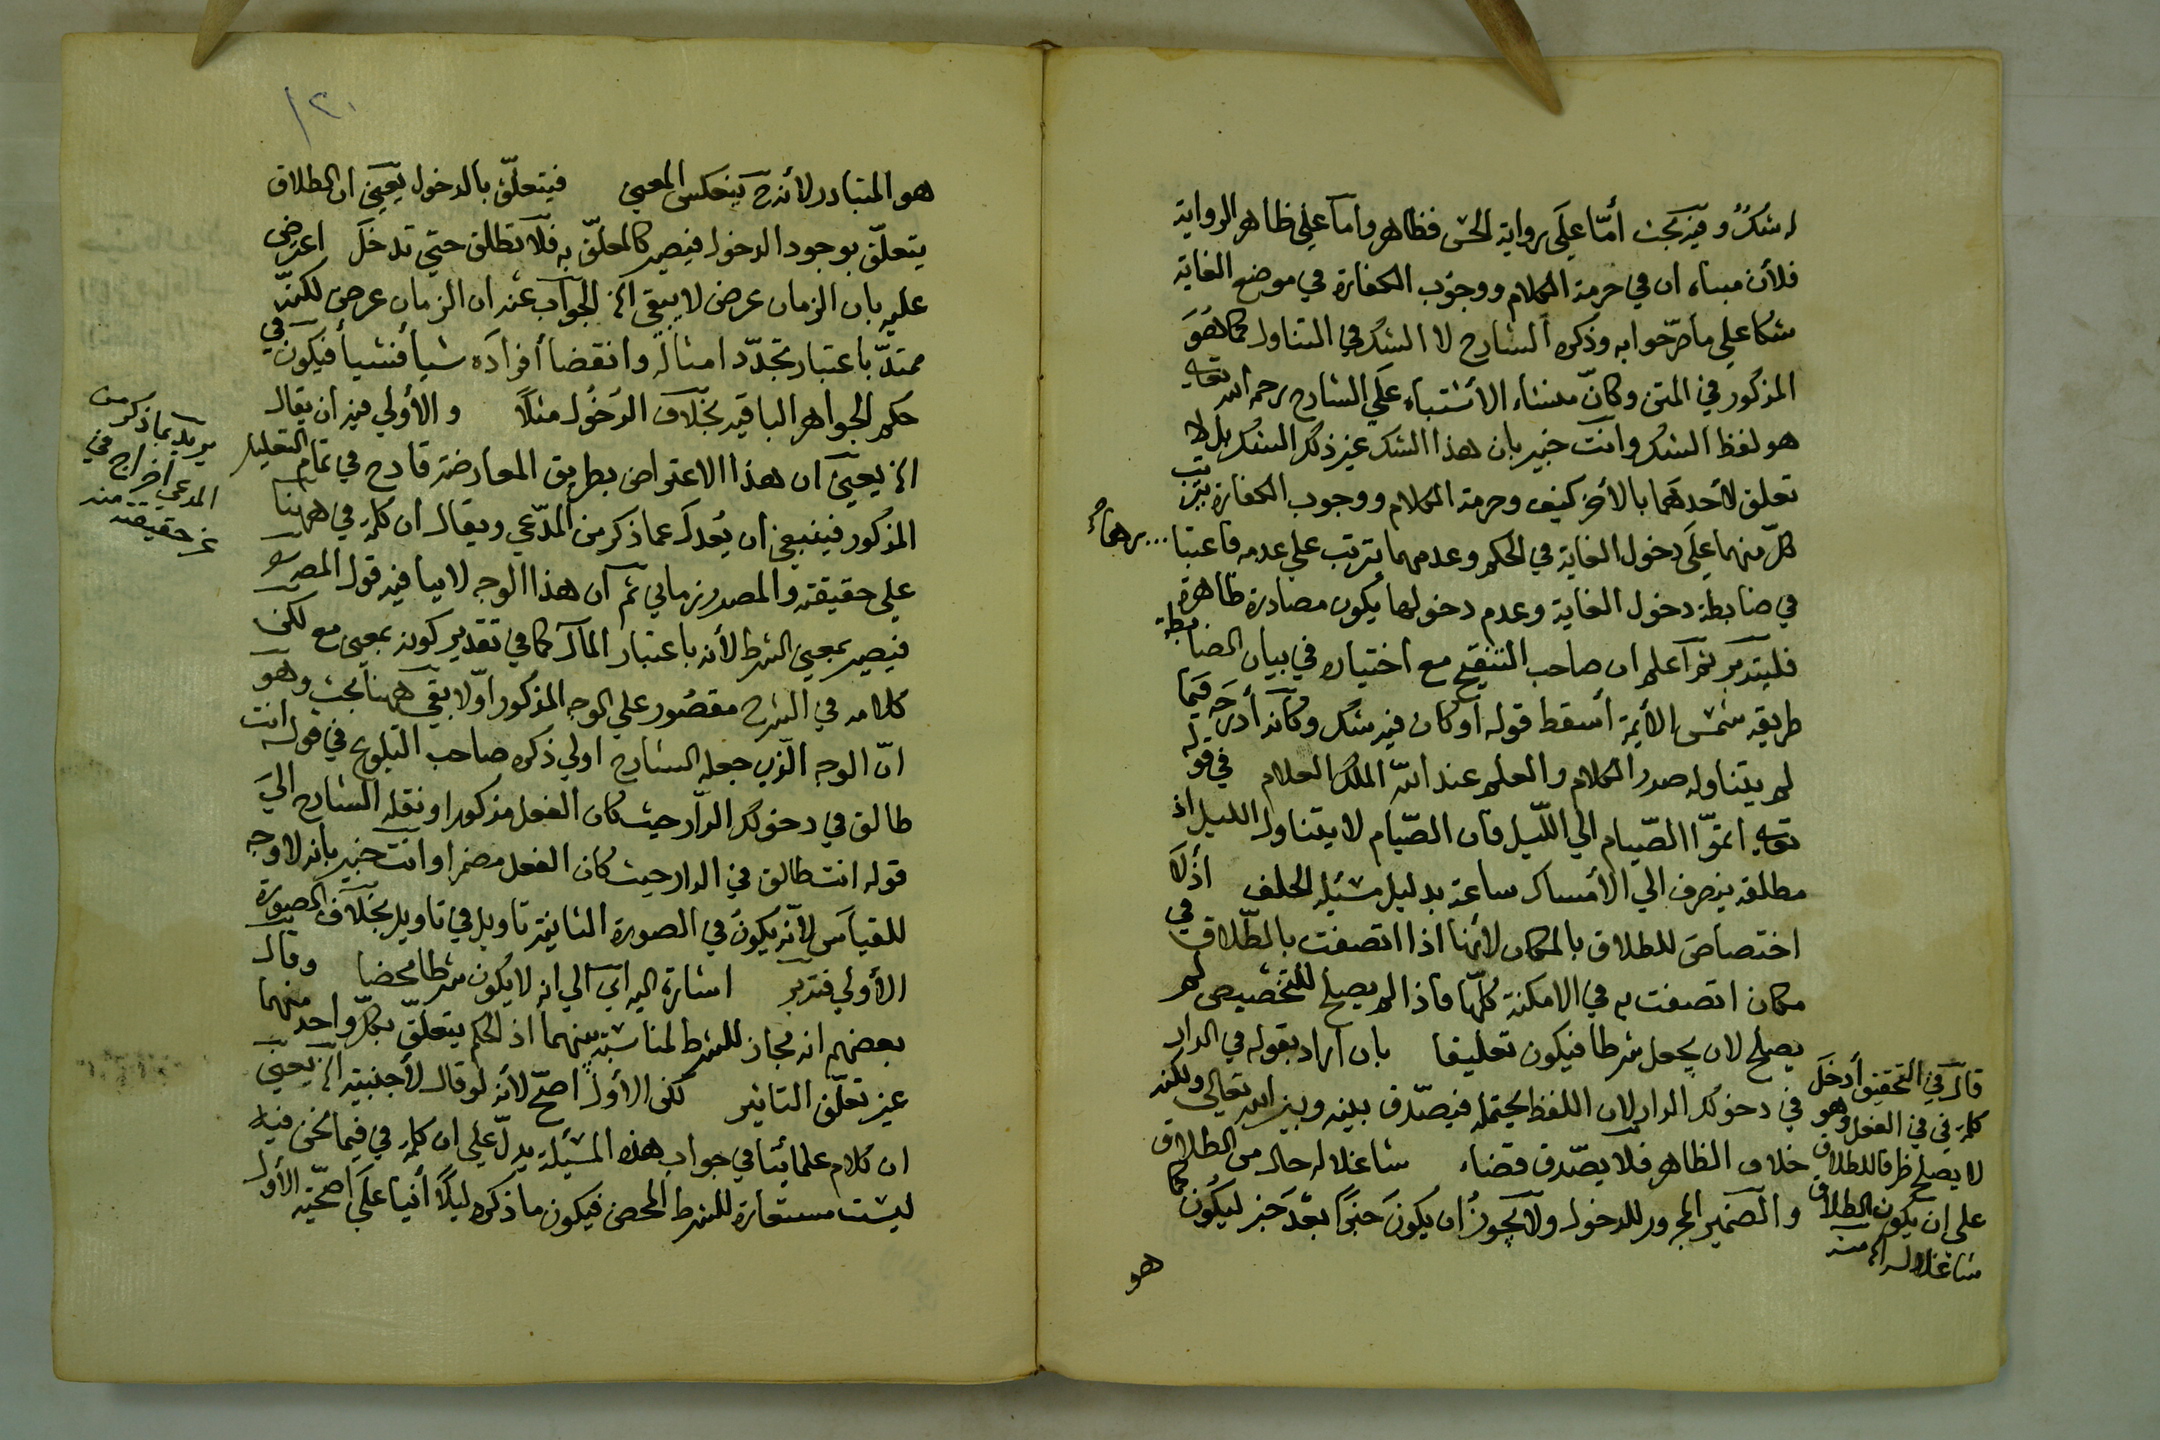 له شك وفيه بحث أمّا على رواية الحسن فظاهر وأما على ظاهر الرواية
فلأن مبناه ان في حرمة الكلام ووجوب الكفارة في موضع الغاية
شكا على ما صرّحوا به وذكره الشارح لا الشك في التناول كما هو
المذكور في المتن وكانّ منشاء الأشتباه على الشارح رحمه الله تعالى
هو لفظ الشك وانت خبير بان هذا الشك غير ذلك الشك بل لا
تعلق لأحدهما بالأخر كيف وحرمة الكلام ووجوب الكفارة يترتب
كلّ منهما على دخول الغاية في الحكم وعدمهما يترتب على عدمه فاعتبارهما
في ضابطة دخول الغاية وعدم دخولها يكون مصادرة ظاهرة
فليتدبر ثم اعلم ان صاحب التنقيح مع اختياره في بيان الضابطة
طريقة شمس الأيمة أسقط قوله أو كان فيه شك وكأنه أدرجه فيما
لم يتناوله صدر الكلام والعلم عند الله الملك العلام في قوله
تعالى اتموّا الصّيام الى اللّيل فان الصّيام لا يتناول الليل اذ
مطلقه ينصرف الي الأمساك ساعة بدليل مسئلة الحلف أذ لا
اختصاصَ للطلاق بالمكان لأنها اذا اتصفت بالطّلاق في
مكان اتصفت به في الامكنة كلّها فاذا لم يصلح للتخصيص لم
يصلح لان يجعل شرطا فيكون تعليقا بان اراد بقوله في الدار
في دخولك الدار لان اللفظ يحتمله فيصّدق بينه وبين الله تعالى ولكنه
خلاف الظاهر فلا يصّدق قضاء شاغلا له حال من الطلاق
والضمير المجرور للدخول ولا يجوز ان يكون خبرًا بعد خبر ليكون كما
هو
قال في التحقيق أدخل
كلمة في في الفعل وهو
لا يصلح ظرفا للطلاق
على ان يكون الطلاق
شاغلا له الخ منه
١٢٠
هو المتبادر لأنه ح ينعكس المعنى فيتعلّق بالدخول يعني ان الطلاق
يتعلّق بوجود الدخول فيصير كالمعلّق به فلا تطلق حتي تدخل اعترض
عليه بان الزمان عرض لا يبقي الخ الجواب عنه ان الزمان عرض لكنّه
ممتدّ باعتبار تجدّد امثاله وانقضا أفراده شيأ فشيأ فيكون في
حكم الجواهر الباقية بخلاف الدخُول مثلًا والأولي فيه ان يقال
الخ يعني ان هذا الاعتراض بطريق المعارضة قادح في تمام التعليل
المذكور فينبغي ان يُعدل عما ذكر من المدّعي ويقال ان كلمة في ههنا
على حقيقته والمصدر زماني ثم ان هذا الوجه لا ينافيه قول المص
فيصير بمعنى الشرط لأنه باعتبار المآل كما في تقدير كونه بمعنى مع لكن
كلامه في الشرح مقصُور علي الوجه المذكور اوّلا بقي ههنا بحث وهو
انّ الوجه الّذي جعله الشارح اولي ذكره صاحب التلويح في قوله انت
طالق في دخولك الدّار حيث كان الفعل مذكورا ونقله الشارح الي
قوله انت طالق في الدار حيث كان الفعل مضمرا وانت خبير بانه لا وجه
للقياس لأنّه يكون في الصورة الثانية تاويل في تاويل بخلاف الصورة
الأولي فتدبر اشارة اليه اى الي انه لا يكون شرطا محضا وقال
بعضهم انه مجاز للشرط لمناسبة بينهما اذ الحكم يتعلّق بكلّ واحد منهما
غير تعلّق التاثير لكن الأول اصحّ لأنه لو قال لأجنبية الخ يعني
ان كلام علمائنا في جواب هذه المسئلة يدلّ علي ان كلمة في فيما نحن فيه
ليست مستعارة للشرط المحض فيكون ما ذكره ليلًا أنيا على اصحّية الأول
يريد بما ذكر من
المدعي اخراج في
عن حقيقته منه